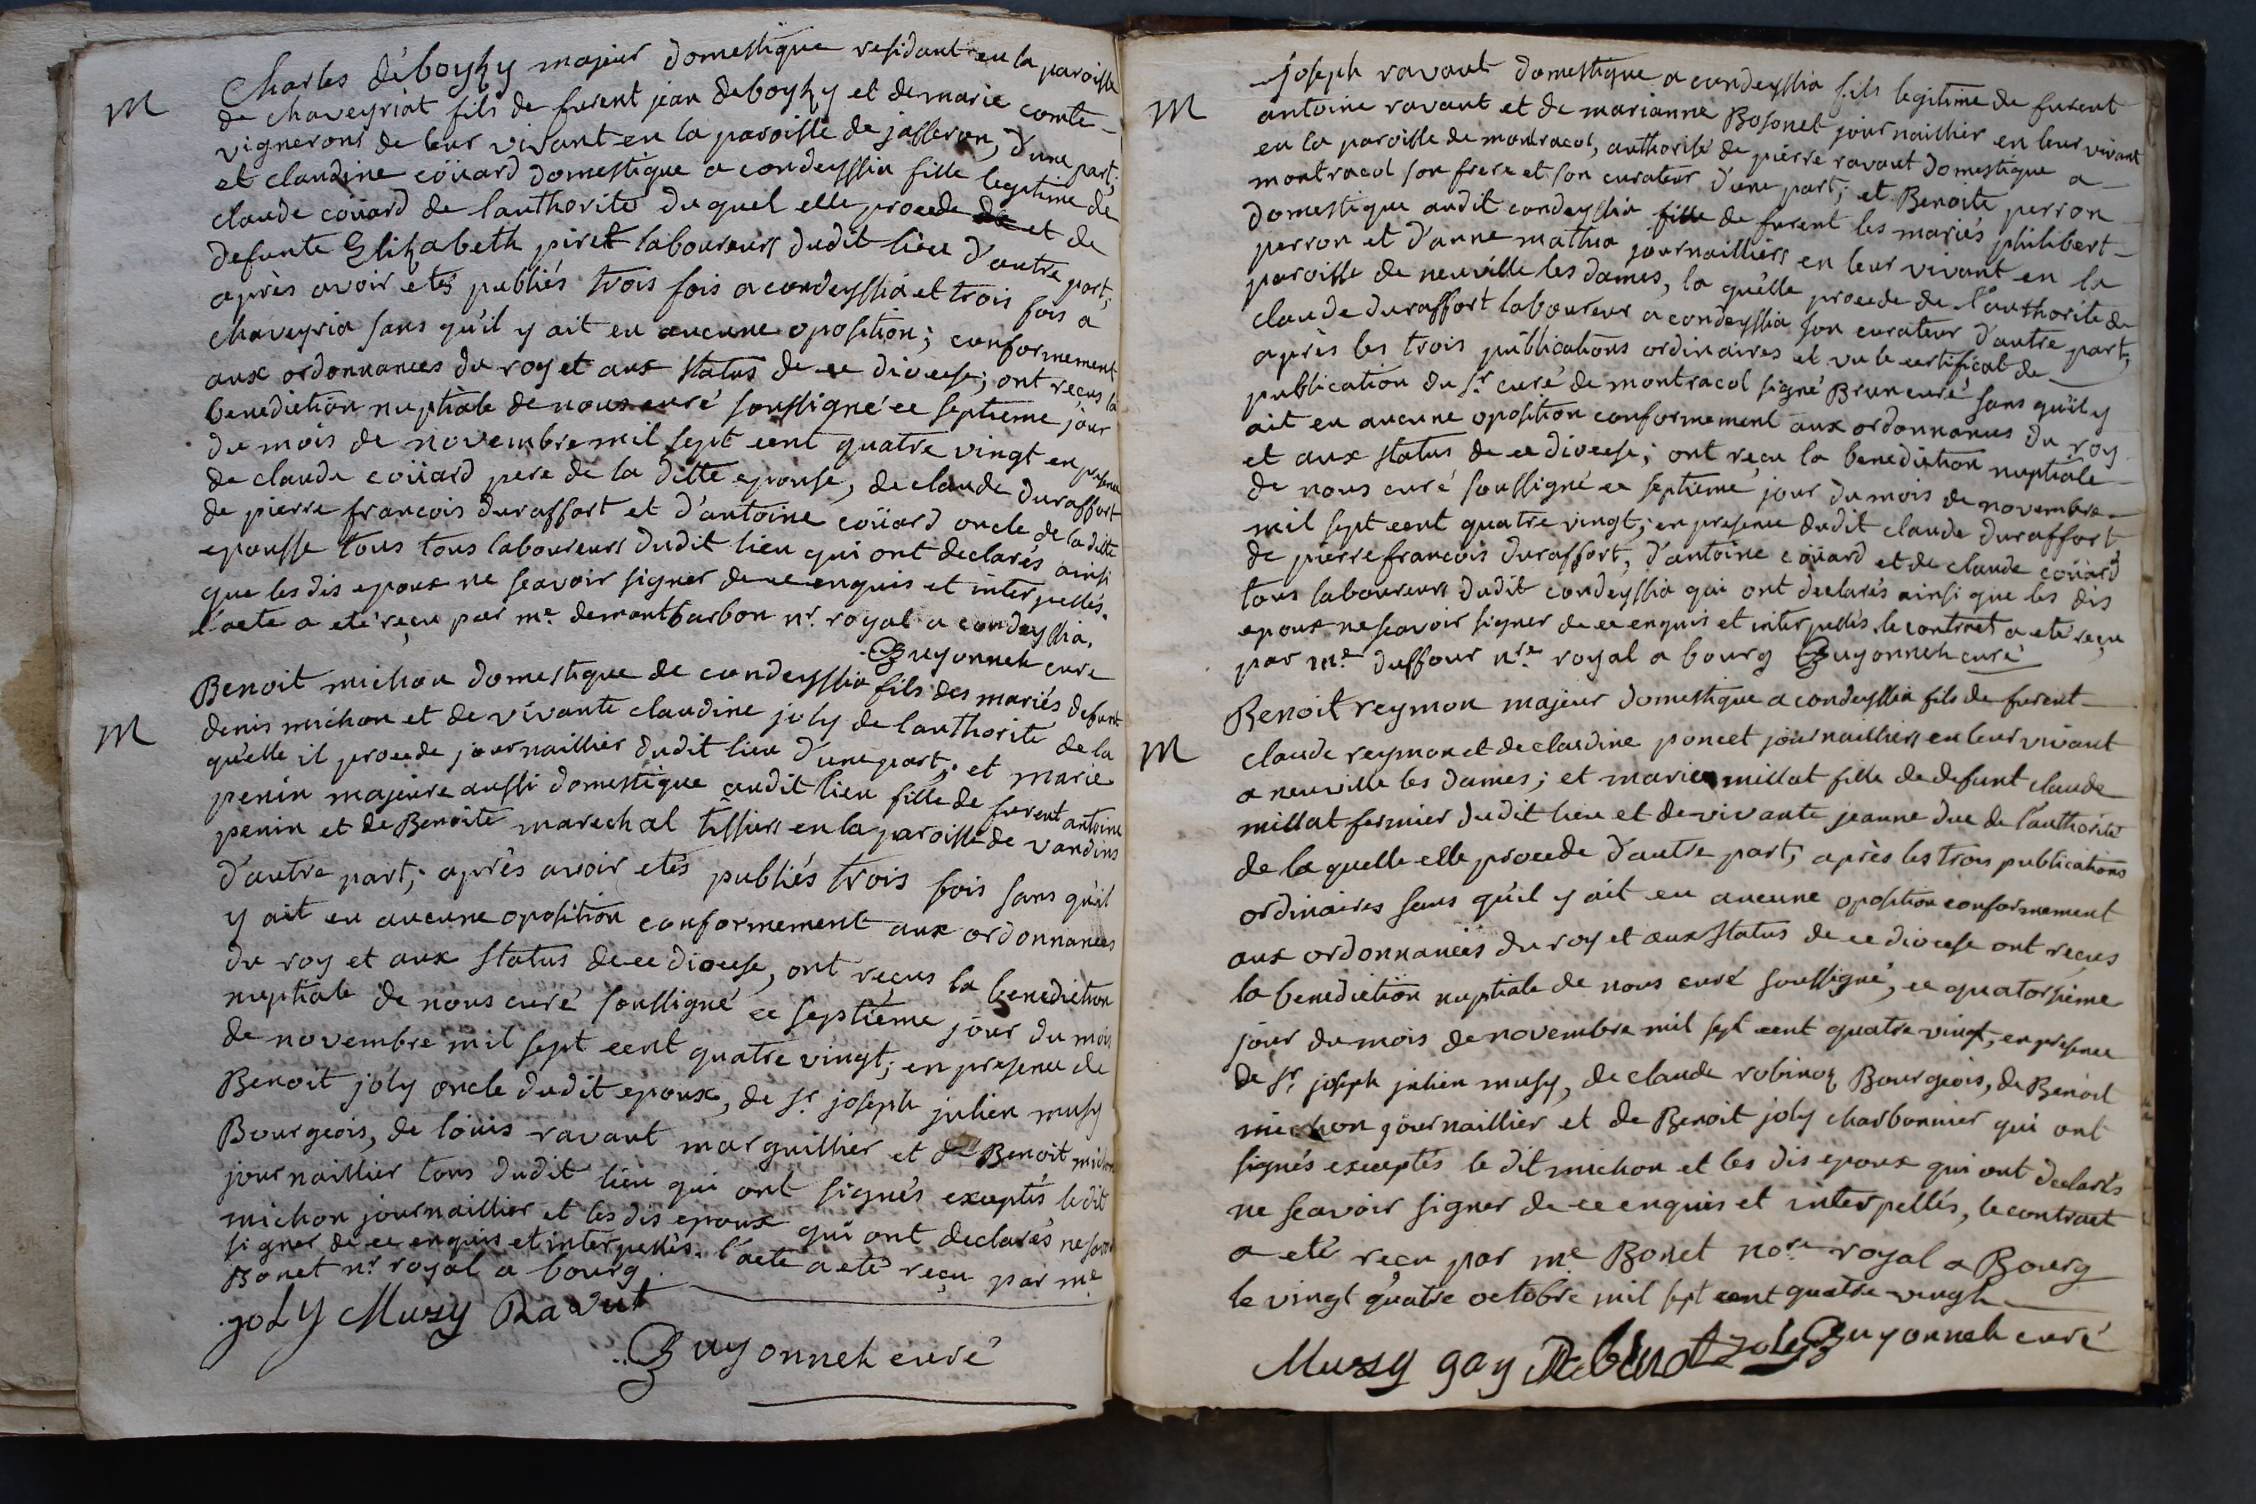 Charles déboyzy majeur domestique residant en la paroisse
M
de chaveyriat fils de furent jean deboyzy et de marie comte
vignerons de leur vivant en la paroisse de jasseron, d'une part;
et claudine coüard domestique a condeyssia fille legitime de
claude coüard de lauthorité du quel elle procede et de
defunte Elizabeth piret laboureurs dudit lieu d'autre part,
après avoir etés publiés trois fois a condeyssia et trois fois a
chaveyria sans qu'il y ait eu aucune oposition; conformement
aux ordonnances du roy et aux status de ce diocese; ont reçus la
benediction nuptiale de nous curé soussigné ce septieme jour
du mois de novembre mil sept cent quatre vingt en presence
de claude coüard pere de la ditte epouse, de claude duraffort
de pierre francois duraffort et d'antoine coüard oncle de la ditte
epousse tous tous laboureurs dudit lieu qui ont declarés ainsi
que les dis epoux ne scavoir signer de ce enquis et interpellés.
l'acte a eté reçu par me. demontbarbon nr. royal a condeyssia.
Guyonneh curé
Benoit michon domestique de condeyssia fils des mariés defunt
M
denis michon et de vivante claudine joly de lauthorité de la
qu'elle il procede journaillier dudit lieu d'une part; et marie
penin majeure aussi domestique audit lieu fille de furent antoine
penin et de Benoite marechal tissiers en la paroisse de vandins
d'autre part; après avoir etés publiés trois fois sans qu'il
y ait eu aucune oposition conformement aux ordonnances
du roy et aux status de ce diocese, ont reçus la benediction
nuptiale de nous curé soussigné ce septième jour du mois
de novembre mil sept cent quatre vingt; en presence de
Benoit joly oncle dudit epoux, de sr. joseph julien musy
Bourgeois, de loüis ravaut marguillier et de Benoit michon
journaillier tous dudit lieu qui ont signés exceptés le dit
michon journaillier et les dis epoux qui ont declarés ne scavoir
signer de ce enquis et interpellés. l'acte a eté reçu par me
Bonet nr. royal a bourg.
joly Musy Ravut
Guyonneh curé
joseph ravaut domestique a condeyssia fils legitime de furent
M
antoine ravaut et de marianne Bosonet journaillier en leur vivant
en la paroisse de montracol, authorisé de pierre ravaut domestique a
montracol son frere et son curateur d'une part; et Benoite perron
domestique audit condeyssia fille de furent les mariés philibert
perron et d'anne mathia journailliers en leur vivant en la
paroisse de neuville les dames, la qu'elle procede de l'authorite de
claude duraffort laboureur a condeyssia son curateur d'autre part,
après les trois publications ordinaires et vu le certificat de
publication du sr. curé de montracol signé Brun curé sans qu'il y
ait eu aucune oposition conformement aux ordonnances du roy
et aux status de ce diocese; ont reçu la benediction nuptiale
de nous curé soussigné ce septieme jour du mois de novembre
mil sept cent quatre vingt; en presence dudit claude duraffort
de pierre francois duraffort, d'antoine coüard et de claude coüard
tous laboureurs dudit condeyssia qui ont declarés ainsi que les dis
epoux ne scavoir signer de ce enquis et interpellés. le contract a eté reçu
par me. duffour nre. royal a bourg Guyonneh curé
Benoit reymon majeur domestique a condeyssia fils de furent
M
claude reymon et de claudine poncet journailliers en leur vivant
a neuville les dames; et marie millat fille de defunt claude
millat fermier dudit lieu et de vivante jeanne duc de l'authorité
de la quelle elle procede d'autre part; après les trois publications
ordinaires sans qu'il y ait eu aucune oposition conformement
aux ordonnances du roy et aux status de ce diocese ont reçus
la benediction nuptiale de nous curé soussigné, ce quatorsième
jour du mois de novembre mil sept cent quatre vingt, en presence
de sr. joseph julien musy, de claude robinoz Bourgeois, de Benoit
michon journaillier et de Benoit joly charbonnier qui ont
signés exceptés le dit michon et les dis epoux qui ont declarés
ne scavoir signer de ce enquis et interpellés, le contract
a eté reçu par me. Bonet nore royal a Bourg
le vingt quatre octobre mil sept cent quatre vingh
Musy gay joly Guyonneh curé